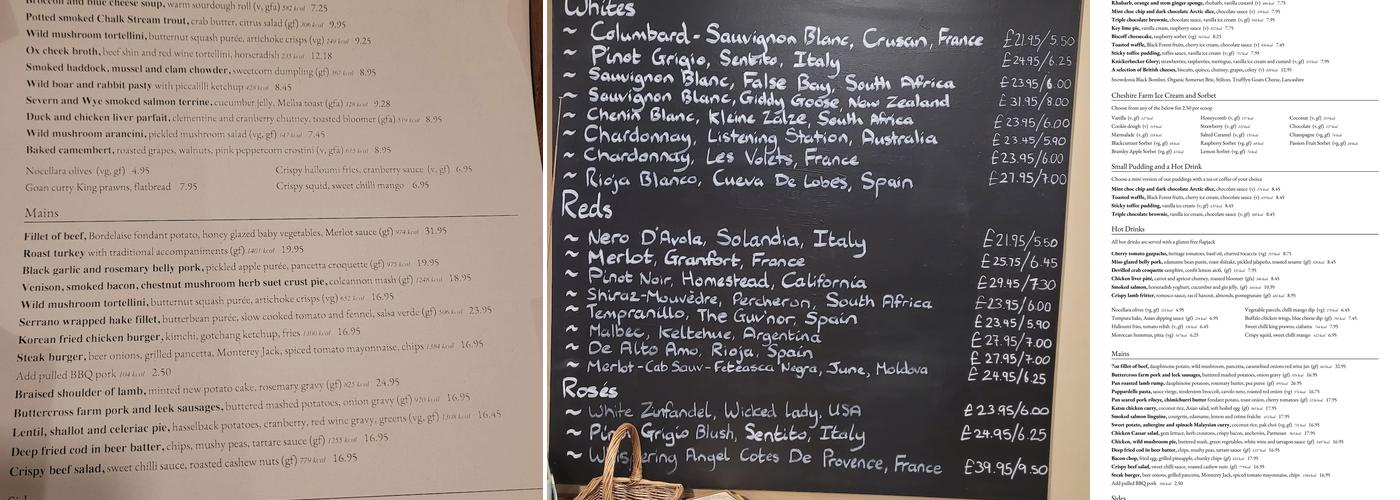 Broccoli and blue cheese soup, warm sourdough roll (v, gfa) 582 kcal 7.25
Potted smoked Chalk Stream trout, crab butter, citrus salad (gf) 306 kcal 9.95
Wild mushroom tortellini, butternut squash purée, artichoke crisps (vg) 249 kcal 9.25
Ox cheek broth, beef shin and red wine tortellini, horseradish 235 kcal 12.18
Smoked haddock, mussel and clam chowder, sweetcorn dumpling (gf) 367 kcal 8.95
Wild boar and rabbit pasty with piccalilli ketchup 428 kcal 8.45
Severn and Wye smoked salmon terrine, cucumber jelly, Melba toast (gfa) 328 kcal 9.28
Duck and chicken liver parfait, clementine and cranberry chutney, toasted bloomer (gfa) 519 kcal 8.95
Wild mushroom arancini, pickled mushroom salad (vg, gf) 147 kcal 7.45
Baked camembert, roasted grapes, walnuts, pink peppercorn crestini (v, gfa) 615 kcal 8.95
Nocellara olives (vg, gf) 4.95 Crispy halloumi fries, cranberry sauce (v, gf) 6.95
Goan curry King prawns, flatbread 7.95 Crispy squid, sweet chilli mango 6.95
Mains
Fillet of beef, Bordelaise fondant potato, honey glazed baby vegetables, Merlot sauce (gf) 974 kcal 31.95
Roast turkey with traditional accompaniments (gf) 1401 kcal 19.95
Black garlic and rosemary belly pork, pickled apple purée, pancetta croquette (gf) 975 kcal 19.95
Venison, smoked bacon, chestnut mushroom herb suet crust pie, colcannon mash (gf) 1248 kcal 18.95
Wild mushroom tortellini, butternut squash purée, artichoke crisps (vg) 652 kcal 16.95
Serrano wrapped hake fillet, butterbean purée, slow cooked tomato and fennel, salsa verde (gf) 506 kcal 23.95
Korean fried chicken burger, kimchi, gotchang ketchup, fries 1300 kcal 16.95
Steak burger, beer onions, grilled pancetta, Monterey Jack, spiced tomato mayonnaise, chips 1584 kcal 16.95
Add pulled BBQ pork 104 kcal 2.50
Braised shoulder of lamb, minted new potato cake, rosemary gravy (gf) 825 kcal 24.95
Buttercross farm pork and leek sausages, buttered mashed potatoes, onion gravy (gf) 970 kcal 16.95
Lentil, shallot and celeriac pie, hasselback potatoes, cranberry, red wine gravy, greens (vg, gf) 1308 kcal 16.45
Deep fried cod in beer batter, chips, mushy peas, tartare sauce (gf) 1255 kcal 16.95
Crispy beef salad, sweet chilli sauce, roasted cashew nuts (gf) 779 kcal 16.95
Whites
~ Columbard-Sauvignon Blanc, Crusan, France £21.95/5.50
~ Pinot Grigio, Sentito, Italy £24.95/6.25
~ Sauvignon Blanc, False Bay, South Africa £23.95/6.00
~ Sauvignon Blanc, Giddy Goose, New Zealand £31.95/8.00
~ Chenin Blanc, Kleine Zalze, South Africa £23.95/6.00
~ Chardonnay, Listening Station, Australia £23.45/5.90
~ Chardonnay, Les Volets, France £23.95/6.00
~ Rioja Blanco, Cueva De Lobes, Spain £27.95/7.00
Reds
~ Nero D'Avola, Solandia, Italy £21.95/5.50
~ Merlot, Granfort, France £25.75/6.45
~ Pinot Noir, Homestead, California £29.45/7.30
~ Shiraz-Mouvèdre, Percheron, South Africa £23.95/6.00
~ Tempranillo, The Guv'nor, Spain £23.45/5.90
~ Malbec, Keltehue, Argentina £27.95/7.00
~ De Alto Amo, Rioja, Spain £27.95/7.00
~ Merlot-Cab Sauv-Feteasca Negra, June, Moldova £24.95/6.25
Rosés
~ White Zinfandel, Wicked Lady, USA £23.95/6.00
~ Grigio Blush, Sentito, Italy £24.95/6.25
~ Whispering Angel Cotes De Provence, France £39.95/9.50
Rhubarb, orange and stem ginger sponge, custard (v) 7.75
Mint choc chip and dark chocolate Arctic slice, chocolate sauce (v) 7.95
Triple chocolate brownie, chocolate sauce, vanilla ice cream (v, gf) 7.95
Key lime pie, vanilla cream, raspberry sauce (v) 7.75
Biscoff cheesecake, raspberry sorbet (vg) 8.25
Toasted waffle, Black Forest fruits, cherry ice cream, chocolate sauce (v) 7.45
Sticky toffee pudding, toffee sauce, vanilla ice cream (v, gf) 7.95
Knickerbocker Glory; strawberries, raspberries, meringue, vanilla ice cream and custard (v, gf) 7.95
A selection of British cheeses, biscuits, quince, chutney, grapes, celery (v) 12.95
Snowdonia Black Bomber, Organic Somerset Brie, Stilton, Truffyn Goats Cheese, Lancashire
Cheshire Farm Ice Cream and Sorbet
Choose from any of the below for 2.50 per scoop
Vanilla (v, gf) Honeycomb (v, gf) Coconut (v, gf)
Cookie dough (v) Strawberry (v, gf) Chocolate (v, gf)
Marmalade (v, gf) Salted Caramel (v, gf) Champagne (vg, gf)
Blackcurrant Sorbet (vg, gf) Raspberry Sorbet (vg, gf) Passion Fruit Sorbet (vg, gf)
Bramley Apple Sorbet (vg, gf) Lemon Sorbet (vg, gf)
Small Pudding and a Hot Drink
Choose a mini version of our puddings with a tea or coffee of your choice
Mint choc chip and dark chocolate Arctic slice, chocolate sauce (v) 8.45
Toasted waffle, Black Forest fruits, cherry ice cream, chocolate sauce (v) 8.45
Sticky toffee pudding, vanilla ice cream (v, gf) 8.45
Triple chocolate brownie, vanilla ice cream, chocolate sauce (v, gf) 8.45
Hot Drinks
All hot drinks are served with a gluten free flapjack
Cherry tomato gazpacho, heritage tomatoes, basil oil, charred focaccia (vg) 8.75
Miso glazed belly pork, edamame bean purée, roast shiitake, pickled jalapeño, toasted sesame (gf) 8.45
Devilled crab croquette samphire, confit lemon aioli, (gf) 7.95
Chicken liver pâté, carrot and apricot chutney, toasted bloomer (gfa) 8.45
Smoked salmon, horseradish yoghurt, cucumber and gin jelly, (gf) 10.95
Crispy lamb fritter, romesco sauce, ras el hanout, almonds, pomegranate (gf) 8.95
Nocellara olives (vg, gf) 4.95 Vegetable parcels, chilli mango dip (vg) 6.45
Tempura hake, Asian dipping sauce (gf) 6.95 Buffalo chicken wings, blue cheese dip (gf) 7.45
Halloumi fries, tomato relish (v, gf) 6.45 Sweet chilli king prawns, ciabatta 7.95
Moroccan hummus, pitta (vg) 6.25 Crispy squid, sweet chilli mango (gf) 6.95
Mains
7oz fillet of beef, dauphinoise potato, wild mushroom, pancetta, caramelised onions red wine jus (gf) 32.95
Buttercross farm pork and leek sausages, buttered mashed potatoes, onion gravy (gf) 16.95
Pan roasted lamb rump, dauphinoise potatoes, rosemary butter, pea puree (gf) 26.95
Pappardelle pasta, sauce vierge, tenderstem broccoli, cavolo nero, roasted red onion (vg) 16.75
Pan seared pork ribeye, chimichurri butter fondant potato, roast onion, cherry tomatoes (gf) 18.95
Katsu chicken curry, coconut rice, Asian salad, soft boiled egg (gf) 17.95
Smoked salmon linguine, courgette, edamame, lemon and crème fraiche 17.95
Swert potato, aubergine and spinach Malaysian curry, coconut rice, pak choi (vg, gf) 16.95
Chicken Caesar salad, gem lettuce, herb croutons, crispy bacon, anchovies, Parmesan 17.95
Chicken, wild mushroom pie, buttered mash, green vegetables, white wine and tarragon sauce (gf) 16.95
Deep fried cod in beer batter, chips, mushy peas, tartare sauce (gf) 17.95
Bacon chop, fried egg, grilled pineapple, chunky chips (gf) 17.95
Crispy beef salad, sweet chilli sauce, roasted cashew nuts (gf) 16.95
Steak burger, beer onions, grilled pancetta, Monterey Jack, spiced tomato mayonnaise, chips 16.95
Add pulled BBQ pork 2.50
Sides